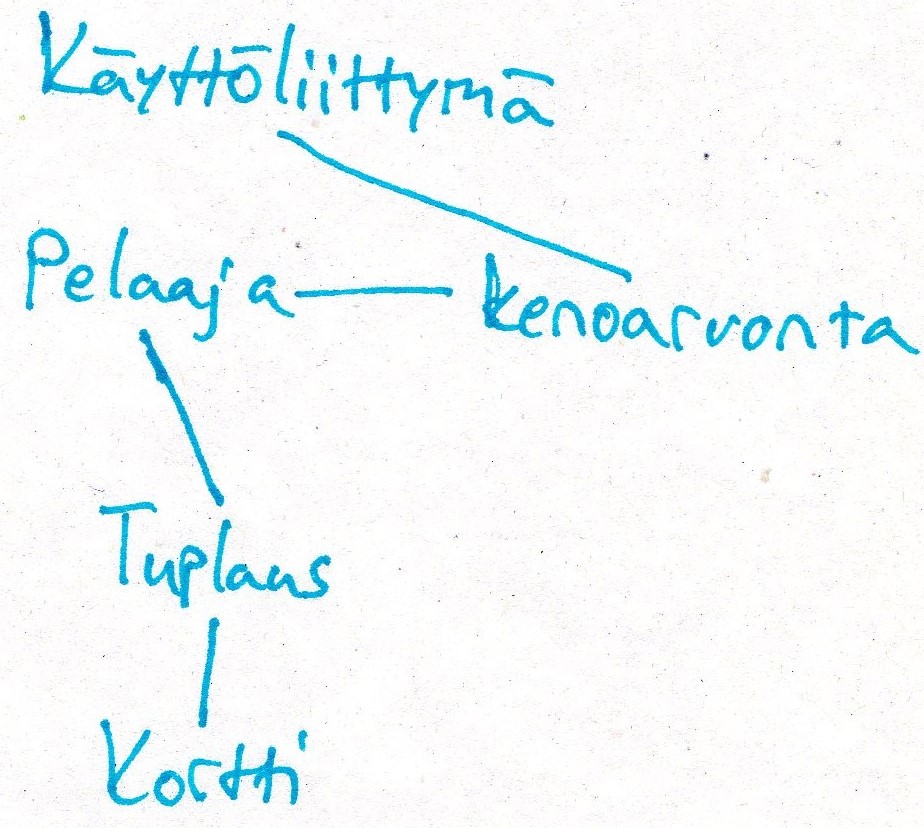 Käyttöliittymä
Pelaaja kenoarvonta
Tuplaus
Kortti